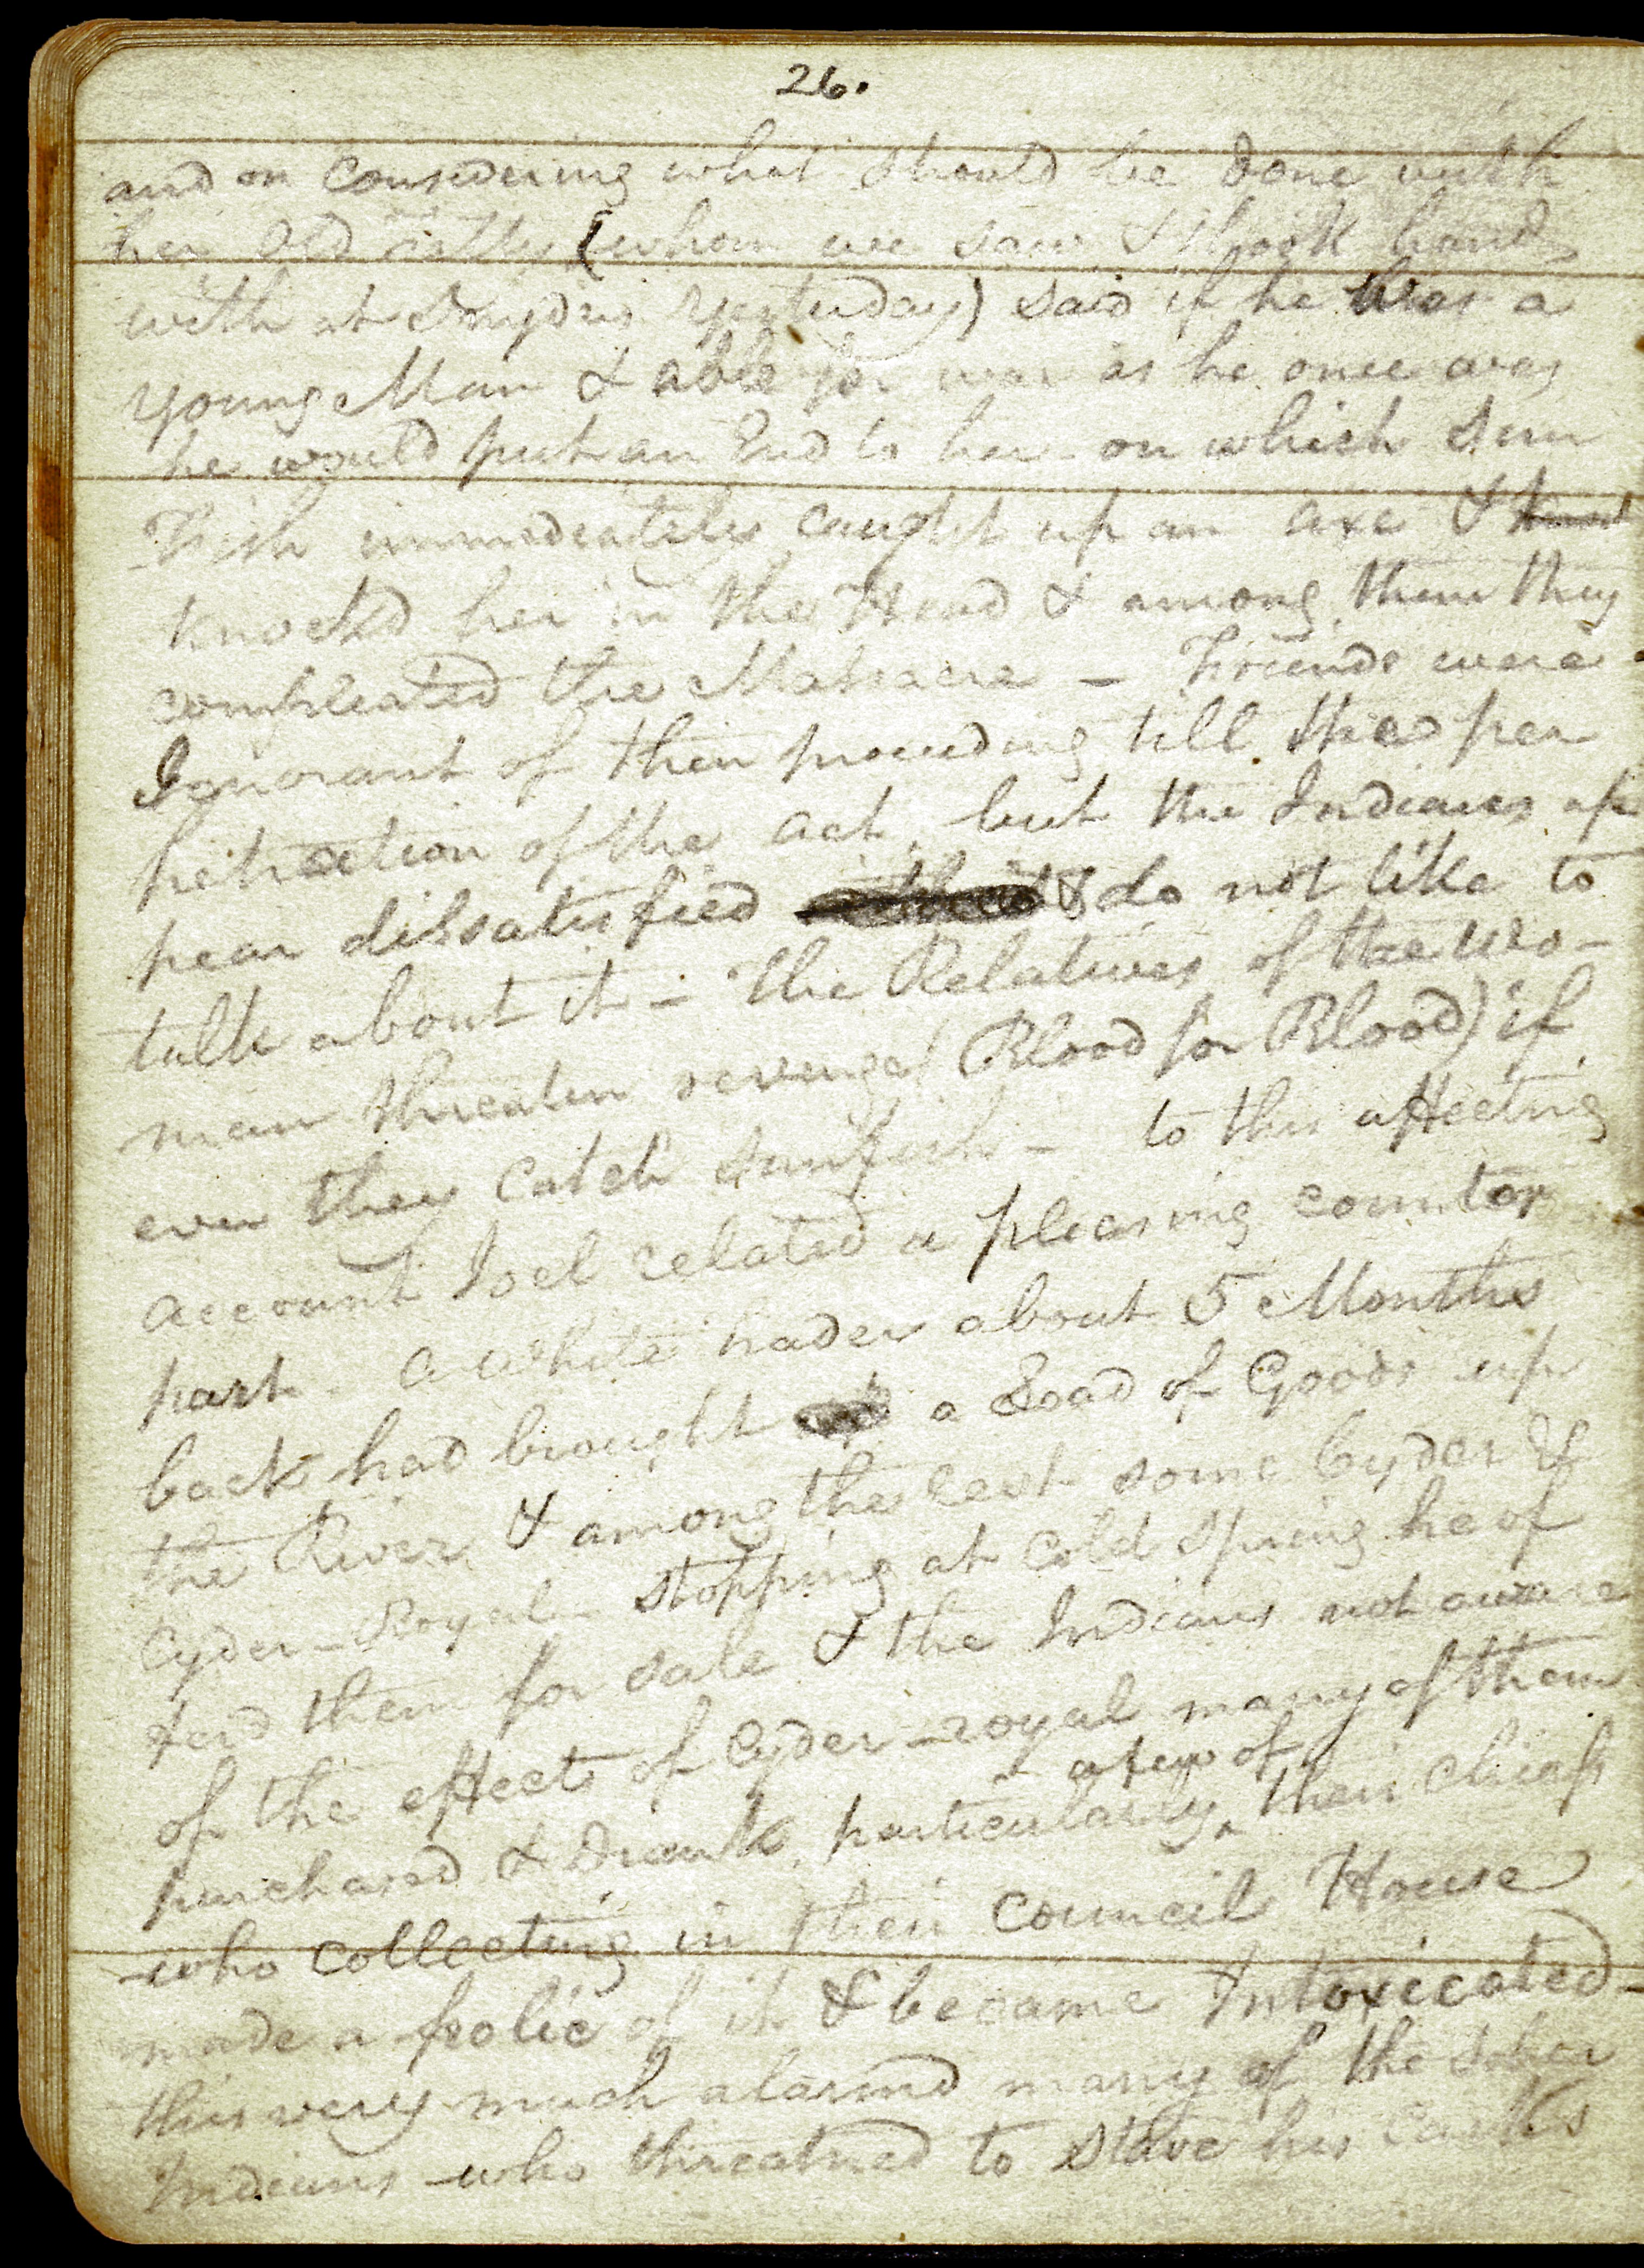 26.
and on Considering what should be done with
her Old (whom we saw & shook hands
with at Snyders yesterday) said if he was a
young Man & able for war as he once was
he would put an End to her - on which Sun
Fish immediately caught up an axe &
knocked her in the Head & among them they
compleated the Massacre - Friends were
Ignorant of their proceeding till the per
petration of the act, but the Indians ap
pear dissatisfied & do not like to
talk about it - The Relatives of the Wo-
man threaten revenge (Blood for Blood) if
ever they Catch Sunfish - to this affecting
account Joel related a pleasing counter
part - a white trader about 5 Months
back had brought a Load of Goods up
the River & among the rest some Cyder &
Cyder-Royal - Stopping at Cold Spring he of
ferd them for sale & the Indians not aware
of the effects of Cyder-royal many of them
purchased & Drank, particularly a few of their chiefs
who Collecting in their Council House
made a frolic of it & became Intoxicated -
this very much alarmd many of the sober
Indians who threatned to Stave his Casks